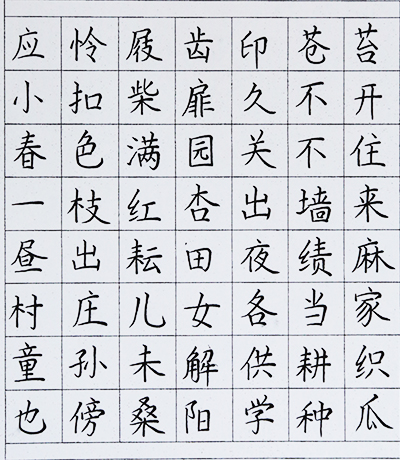 应怜屐齿印苍苔
小扣柴扉久不开
春色满园关不住
一枝红杏出墙来
昼出耘田夜绩麻
村庄儿女各当家
童孙未解供耕织
也傍桑阳学种瓜